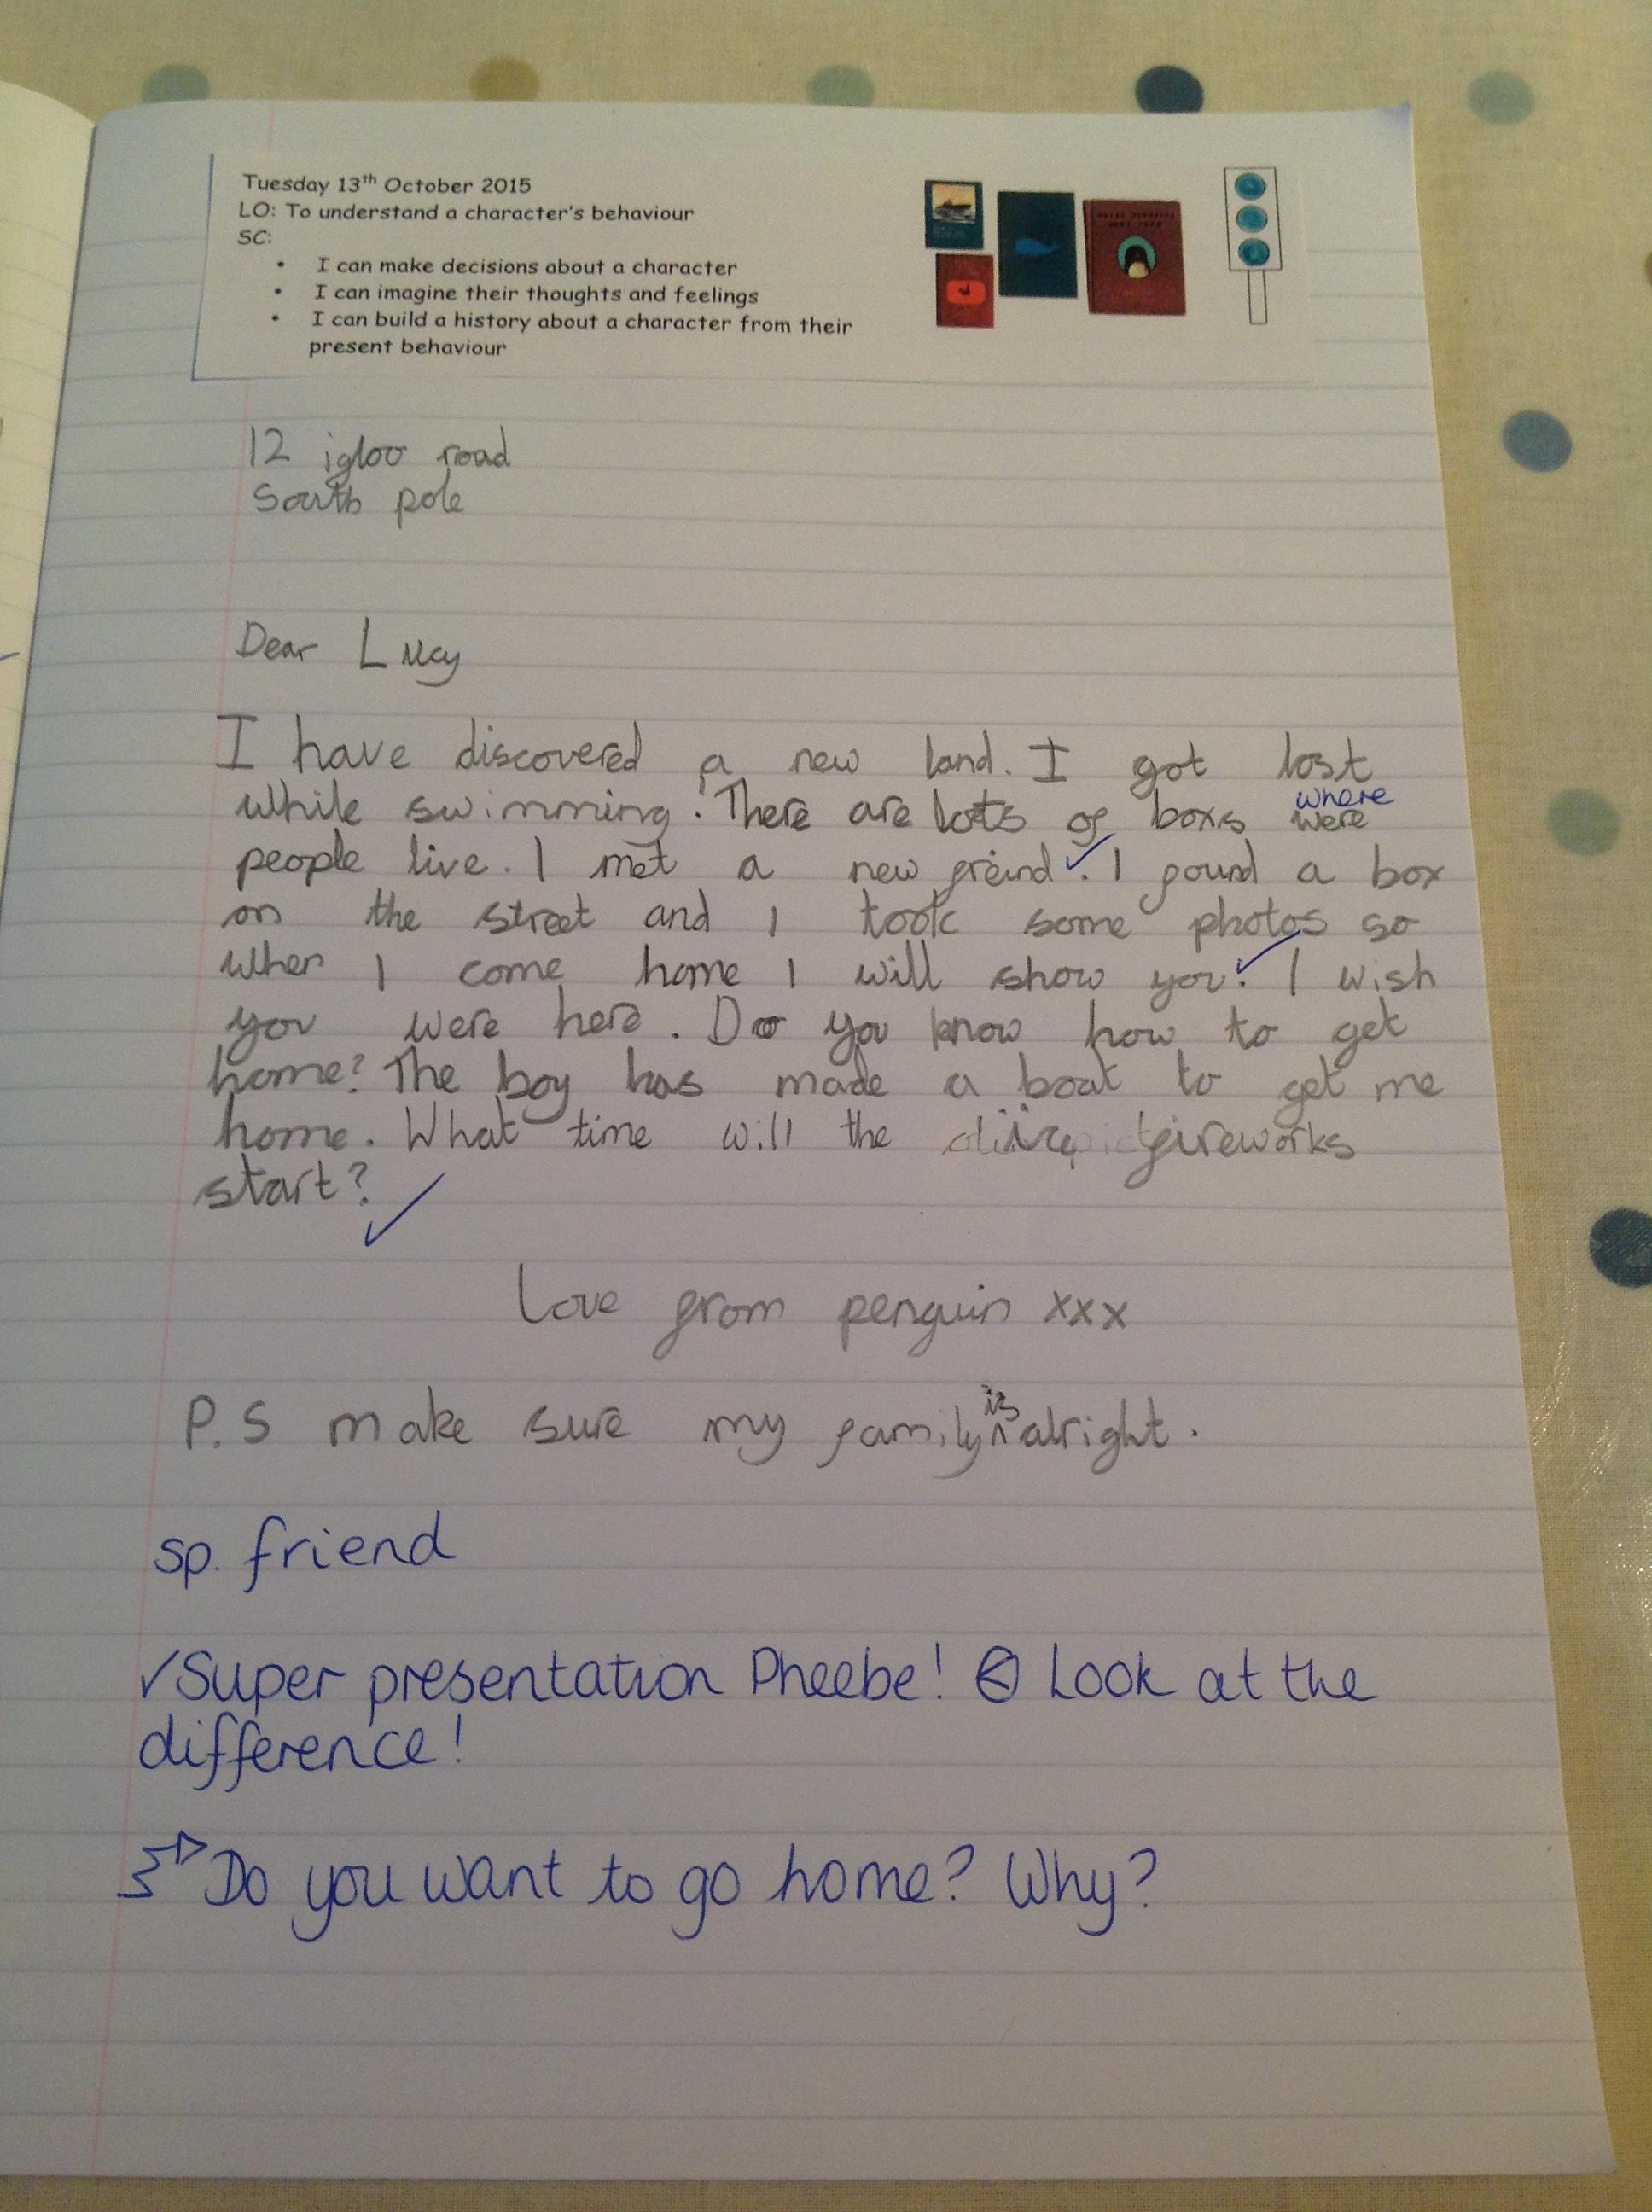 Tuesday 13th October 2015
LO: To understand a character's behaviour
SC:
• I can make decisions about a character
• I can imagine their thoughts and feelings
• I can build a history about a character from their
present behaviour
12 igloo road
South pole
Dear Lucy
I have discovered a new land. I got lost
while swimming. There are lots of boxs were
where
people live. I met a new freind. I found a box
on the street and I took some photos so
when I come home I will show you. I wish
you were here. Do you know how to get
home? The boy has made a boat to get me
home. What time will the fireworks
start?
Love from penguin xxx
P.S make sure my family is alright.
sp. friend
✓Super presentation Pheebe! Look at the
difference!
Do you want to go home? Why?